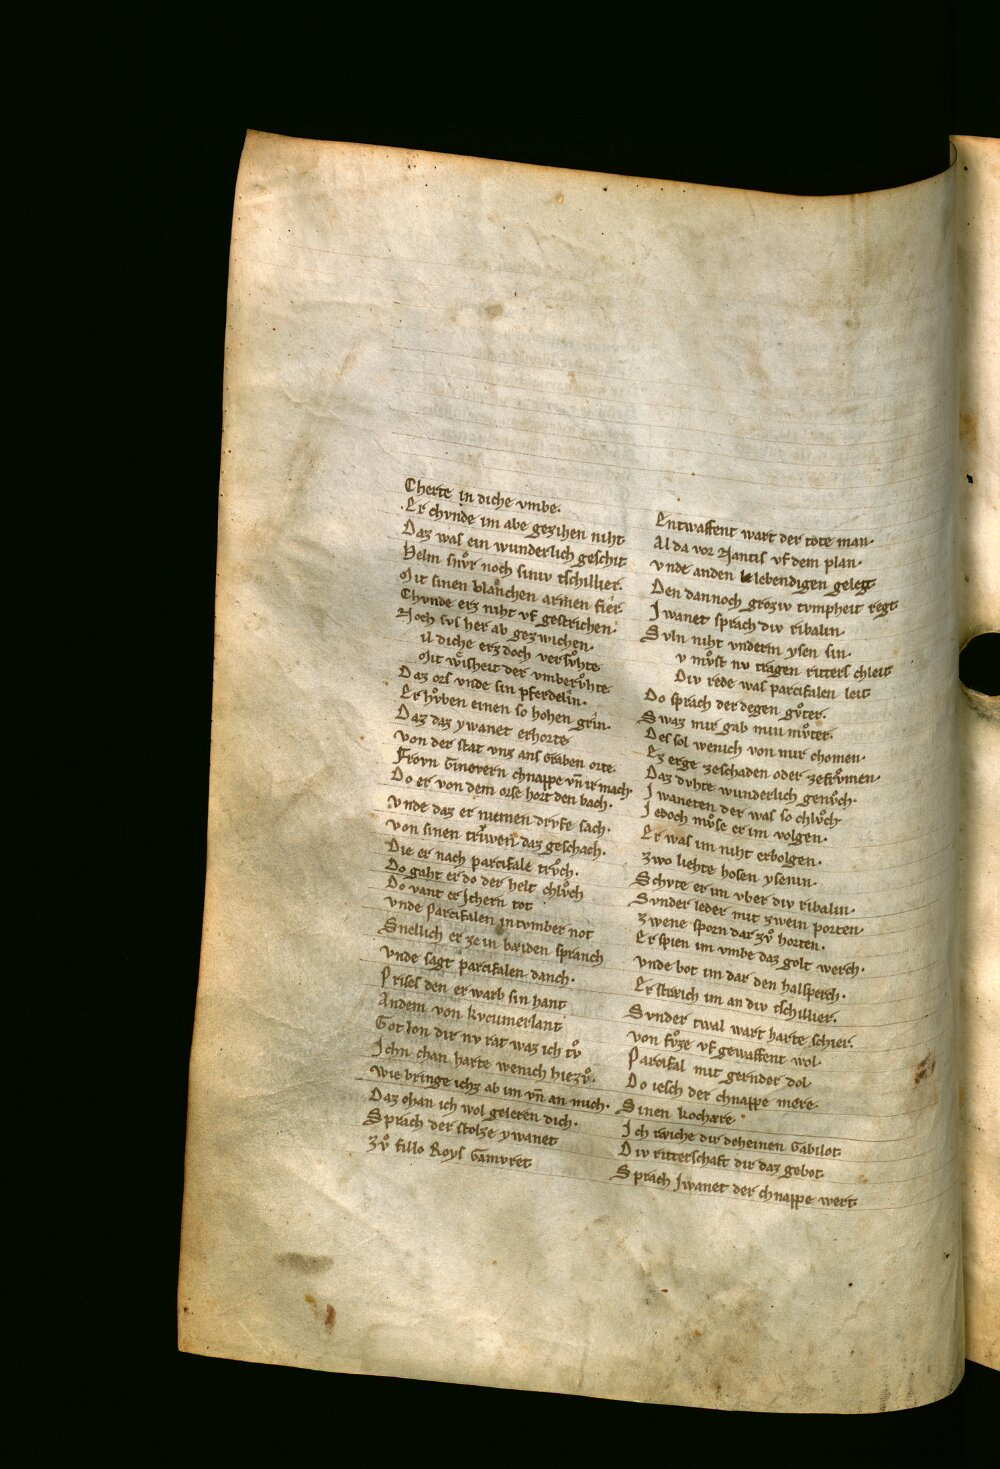 Cherte in diche vmbe·
Er chvnde im abe gezihen niht
Daz was ein wunderlich geschit
Helm snvͦr noch siniv tschillier·
Mit sinen blanchen armen fier
Chvnde erz niht vf gestrichen·
Noch svs her ab gezwichen·
il diche erz doch versvͦhte
Mit wisheit der vmbervͦhte
Daz ors vnde sin pferdelin·
Er hvͦben einen so hohen grin·
Daz daz ywanet erhorte
von der stat vnz ans graben orte·
Frovn Ginovern chnappe vn̄ ir mach·
Do er von dem orse hort den bach·
vnde daz er niemen drvfe sach·
von sinen triwen daz geschach·
Die er nach parcifale trvͦch·
Do gaht er do der helt chlvͦch
Do vant er Jthern tot
vnde Parcifalen in tvmber not
Snellich er ze in baiden spranch
vnde sagt parcifalen danch·
Prises den erwarb sin hant
Andem von kvcumerlant
Got lon dir nv rat waz ich tvͦ
Ichn chan harte wenich hiezvͦ·
wie bringe ichz ab im vn̄ an mich·
Daz chan ich wol geleren dich·
Sprach der stolze ywanet
zvͦ fillo Roys Gamvret
Entwaffent wart der tote man·
Al da vor Nantis vf dem plan·
vnde anden lebendigen geleg
Den dannoch groziv tvmpheit regt
Iwanet sprach div ribalin·
Svln niht vnderm ysen sin·
v mvͦst nv tragen ritters chleit
Div rede was parcifalen leit
Do sprach der degen gvͦter·
Swaz mir gab min mvͦter·
Des sol wenich von mir chomen·
Ez erge zeschaden oder zefrvͦmen·
Daz dvhte wunderlich genvͦch·
Iwaneten der was so chlvͦch
Iedoch mvͦse er im volgen·
Er was im niht erbolgen·
zwo liehte hosen ysenin·
Schvte er im vber div ribalin·
Svnder leder mit zwein porten·
zwene sporn dar zvͦ horten·
Er spien im vmbe daz golt werch·
vnde bot im dar den halsperch·
Er streich im an div tschillier·
Svnder twal wart harte schier·
von fvͦze vf gewaffent wol·
Parcifal mit gernder dol
Do iesch der chnappe mere·
Sinen kochære·
Ich raiche dir deheinen Gabilot·
Div ritterschaft dir daz gebot·
Sprach Jwanet der chnappe wert·